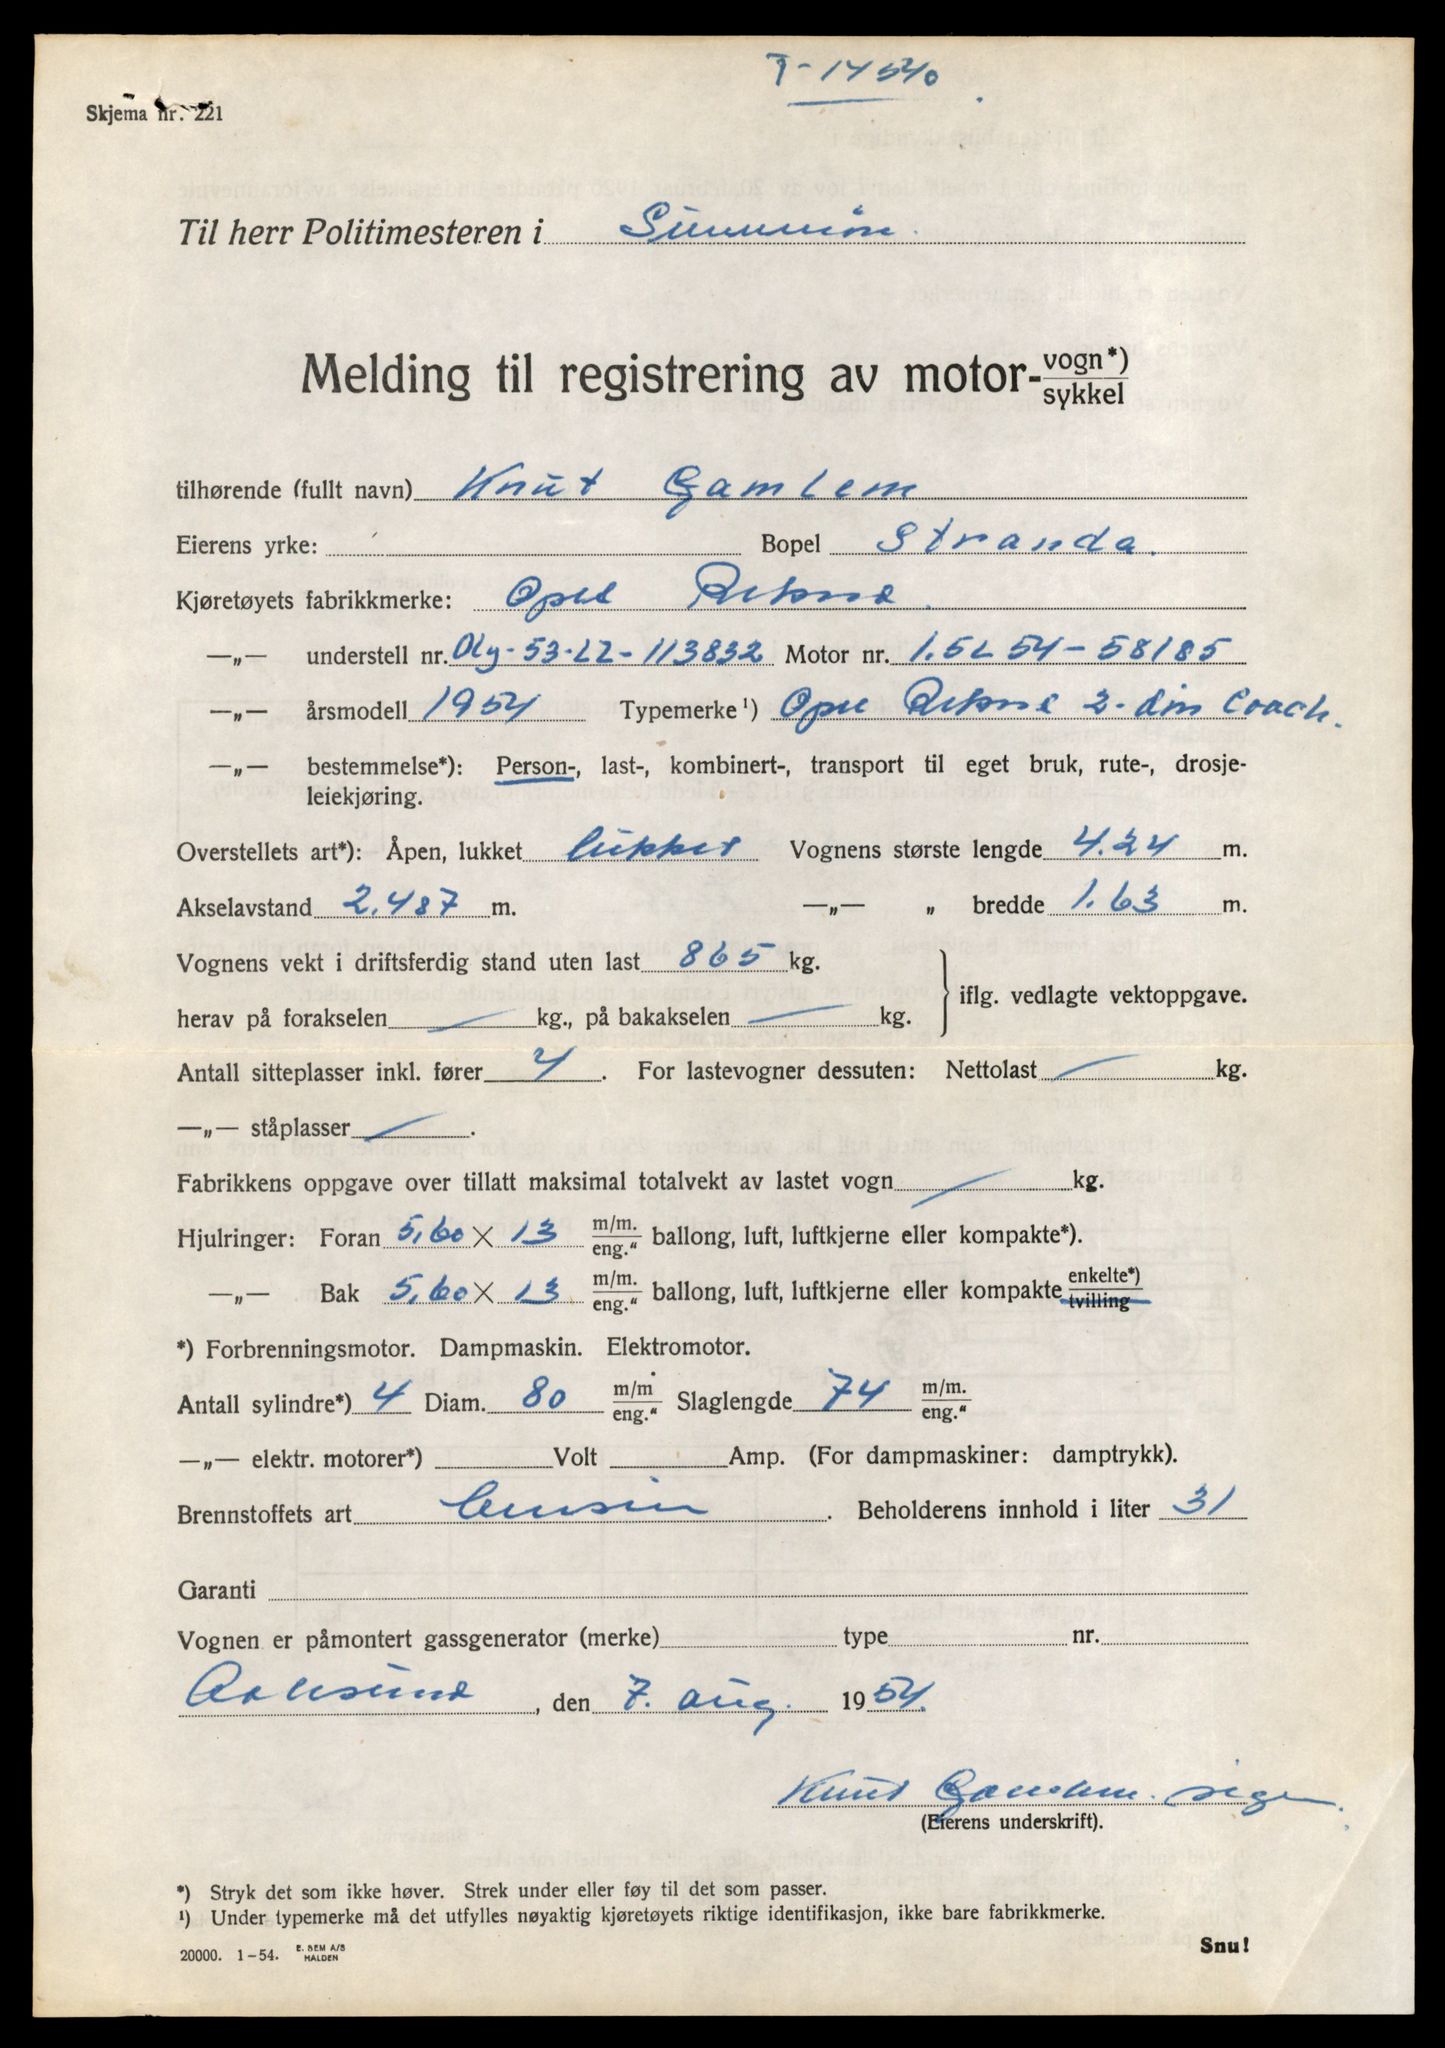 T-14540
Skjema nr. 221
Til herr Politimesteren i Sunnmøre.
Melding til registrering av motor-vogn*)
sykkel
tilhørende (fullt navn) Knut Gamlem
Eierens yrke: Bopel Stranda.
Kjøretøyets fabrikkmerke: Opel Rekord.
—„— understell nr. Oly-53-LZ-113832 Motor nr. 1.5L 54-58185
—„— årsmodell 1954 Typemerke¹) Opel Rekord 2-dørs Coach.
—„— bestemmelse*): Person-, last-, kombinert-, transport til eget bruk, rute-, drosje-
leiekjøring.
Overstellets art*): Åpen, lukket lukket Vognens største lengde 4.24 m.
Akselavstand 2.487 m. —„— „ bredde 1.63 m.
Vognens vekt i driftsferdig stand uten last 865 kg.
herav på forakselen — kg., på bakakselen — kg. iflg. vedlagte vektoppgave.
Antall sitteplasser inkl. fører 4. For lastevogner dessuten: Nettolast — kg.
—„— ståplasser —.
Fabrikkens oppgave over tillatt maksimal totalvekt av lastet vogn — kg.
Hjulringer: Foran 5,60 X 13 m/m. eng.“ ballong, luft, luftkjerne eller kompakte*).
—„— Bak 5,60 X 13 m/m. eng.“ ballong, luft, luftkjerne eller kompakte enkelte*) tvilling
*) Forbrenningsmotor. Dampmaskin. Elektromotor.
Antall sylindre*) 4 Diam. 80 m/m eng.“ Slaglengde 74 m/m. eng.“
—„— elektr. motorer*) Volt Amp. (For dampmaskiner: damptrykk).
Brennstoffets art bensin. Beholderens innhold i liter 31
Garanti
Vognen er påmontert gassgenerator (merke) type nr.
Aalesund, den 7. aug. 1954.
Knut Gamlem. sign.
(Eierens underskrift).
*) Stryk det som ikke høver. Strek under eller føy til det som passer.
¹) Under typemerke må det utfylles nøyaktig kjøretøyets riktige identifikasjon, ikke bare fabrikkmerke.
20000. 1-54. E. SEM A/S HALDEN
Snu!